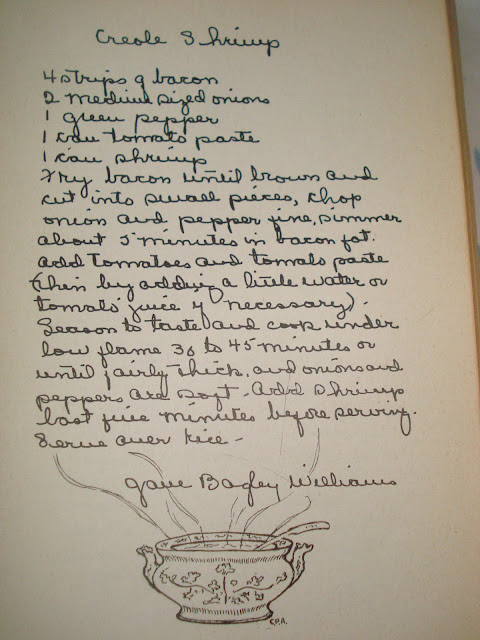 Creole Shrimp
4 strips of bacon
2 medium sized onions
1 green pepper
1 can tomato paste
1 can shrimp
Fry bacon until brown and
cut into small pieces, chop
onion and pepper fine, simmer
about 5 minutes in bacon fat.
Add tomatoes and tomato paste
(thin by adding a little water or
tomato juice if necessary).
Season to taste and cook under
low flame 30 to 45 minutes or
until fairly thick, and onions and
peppers are soft. Add shrimp
last five minutes before serving.
Serve over rice -
Jane Bagley Williams
C.P.A.